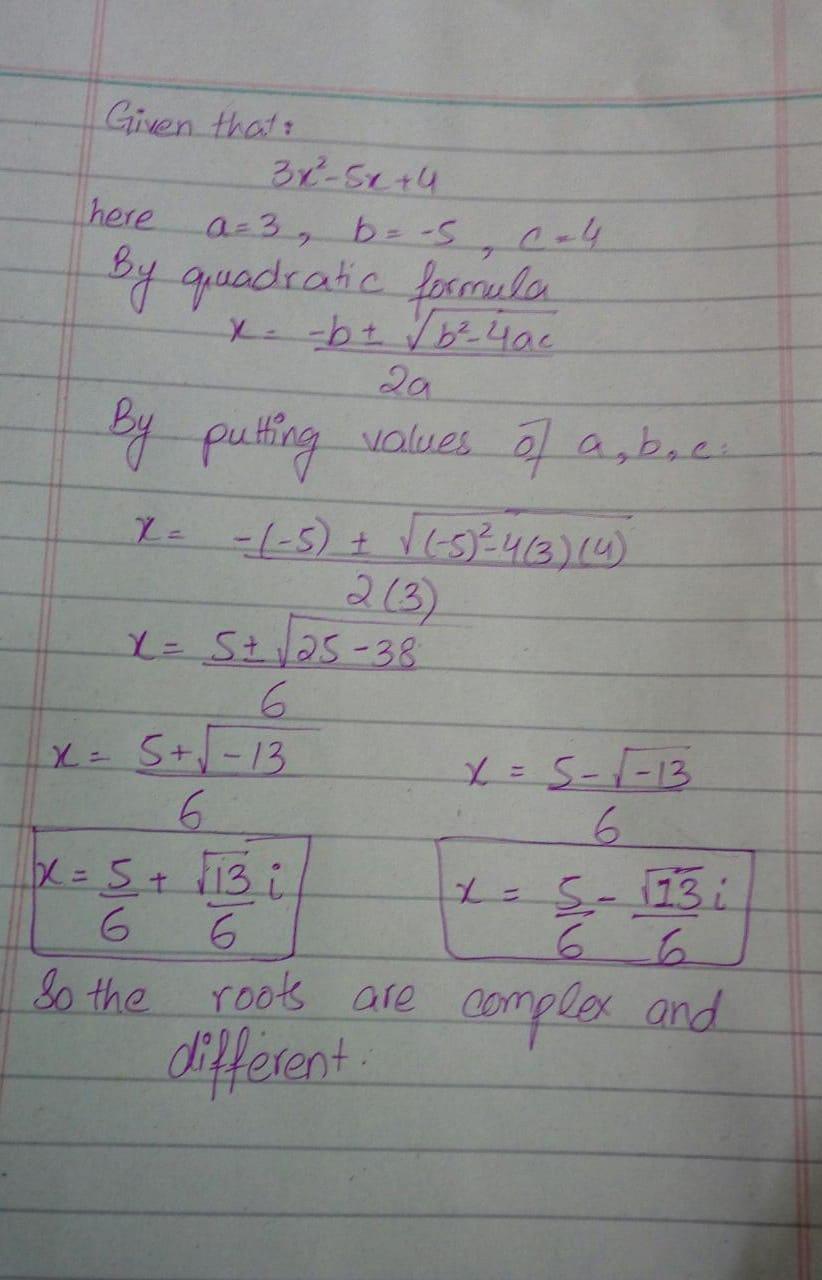 Given that:
3x²-5x+4
here a=3, b=-5, c=4
By quadratic formula
x = -b ± √b²-4ac
2a
By putting values of a, b, c:
x = -(-5) ± √(-5)²-4(3)(4)
2(3)
x = 5±√25-38
6
x = 5+√-13 x = 5-√-13
6 6
x = 5 + √13 i x = 5 - √13 i
6 6 6 6
So the roots are complex and
different.